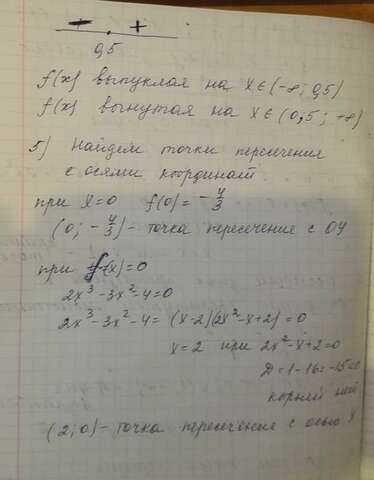 - +
0,5
f(x) выпуклая на x∈(-∞; 0,5)
f(x) вогнутая на x∈(0,5; +∞)
5) Найдем точки пересечения
с осями координат.
при x=0 f(0)= -4/3
(0; -4/3) - точка пересечение с OY
при f(x)=0
2x³-3x²-4=0
2x³-3x²-4= (x-2)(2x²-x+2)=0
x=2 при 2x²-x+2=0
D=1-16=-15=0
корней нет
(2;0) - точка пересечения с осью